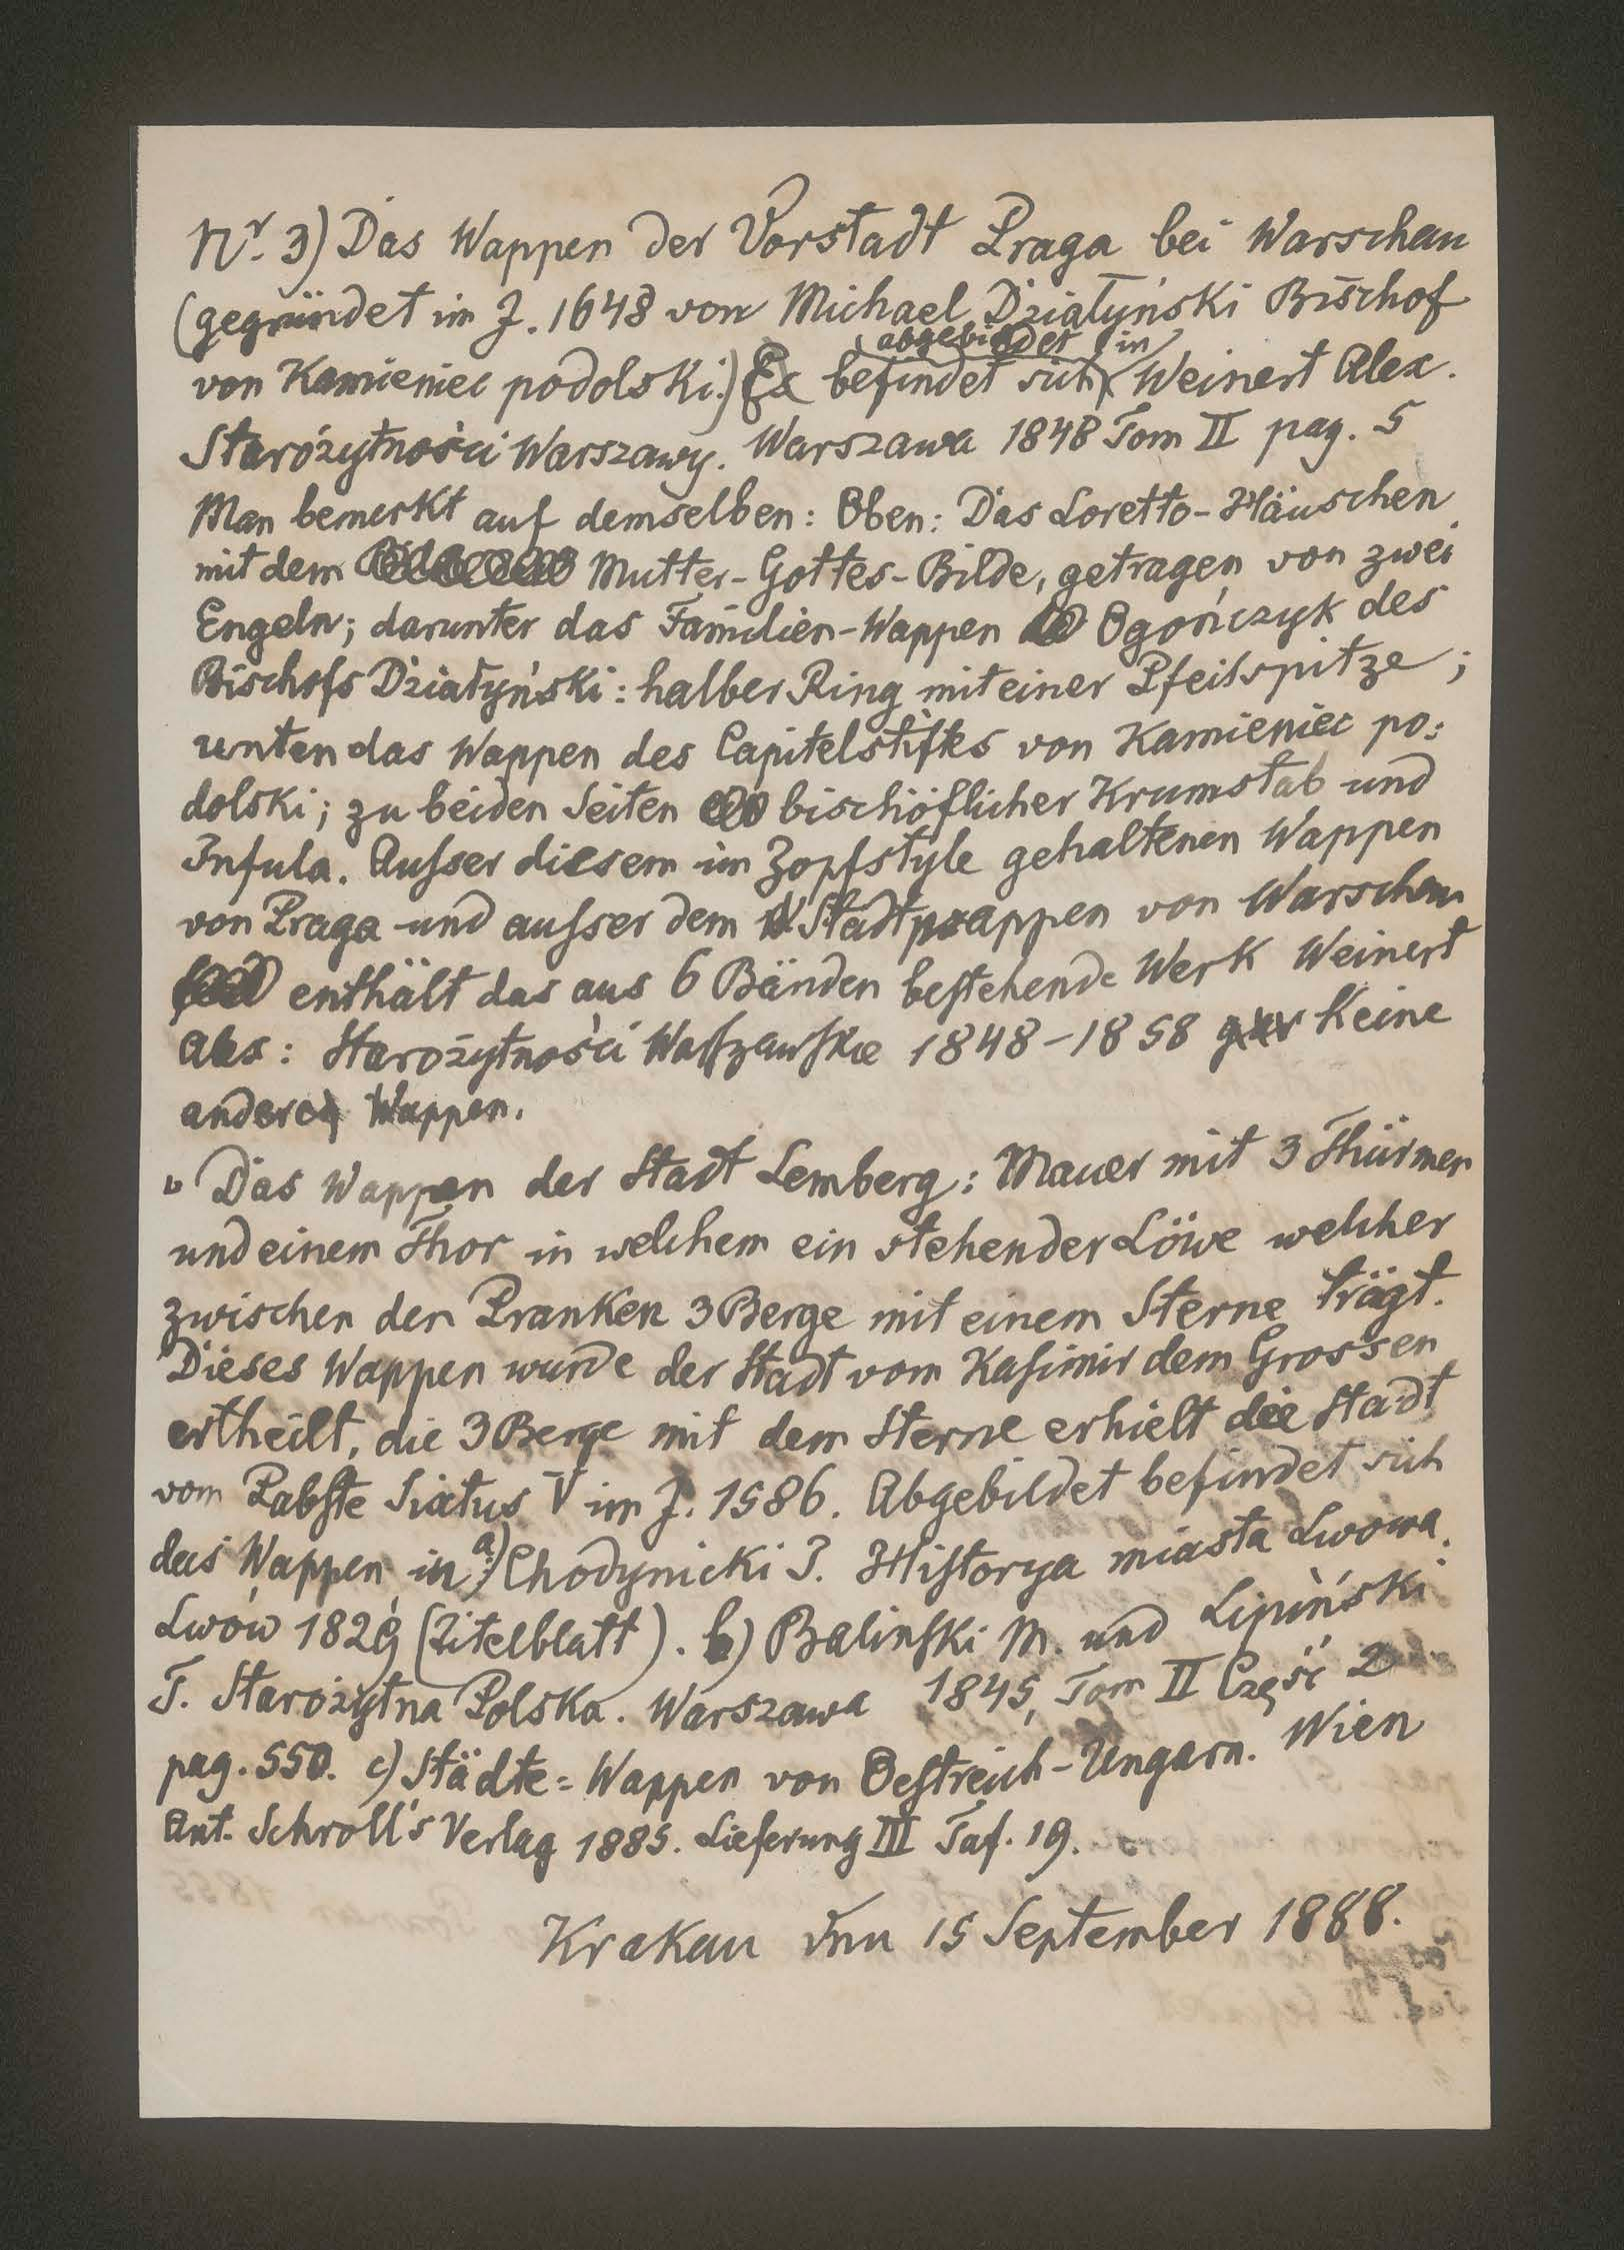 Nr. 3) Das Wappen der Vorstadt Praga bei Warschau
(gegründet im J. 1648 von Michael Działyński Bischof
abgebildet in
von Kamieniec podolski.) Es befindet sich Weinert Alex.
Starożytności Warszawy. Warszawa 1848 Tom II pag. 5
Man bemerkt auf demselben: Oben: Das Loretto-Häuschen
mit dem Mutter-Gottes-Bilde, getragen von zwei
Engeln; darunter das Familien-Wappen Ogończyk des
Bischofs Działyński: halber Ring mit einer Pfeilspitze;
unten das Wappen des Capitelstiftes von Kamieniec po:
dolski; zu beiden Seiten bischöflicher Krumstab und
Infula. Ausser diesem im Zopfstyle gehaltenen Wappen
von Praga und ausser dem Stadtwappen von Warschau
enthält das aus 6 Bänden bestehende Werk Weinert
Alex: Starożytności Warszawskie 1848-1858 gar keine
anderen Wappen.
Das Wappen der Stadt Lemberg: Mauer mit 3 Thürmen
und einem Thor in welchem ein stehender Löwe welcher
zwischen den Pranken 3 Berge mit einem Sterne trägt.
Dieses Wappen wurde der Stadt vom Kasimir dem Grossen
ertheilt, die 3 Berge mit dem Sterne erhielt die Stadt
vom Pabste Sixtus V im J. 1586. Abgebildet befindet sich
das Wappen in a) Chodynicki I. Historya miasta Lwowa.
Lwów 1829 (Titelblatt). b) Balinski M. und Lipiński
T. Starożytna Polska. Warszawa 1845, Tom II Część 2
pag. 550. c) Städte=Wappen von Oestreich-Ungarn. Wien
Ant. Schroll's Verlag 1885. Lieferung III Taf. 19.
Krakau den 15 September 1888.